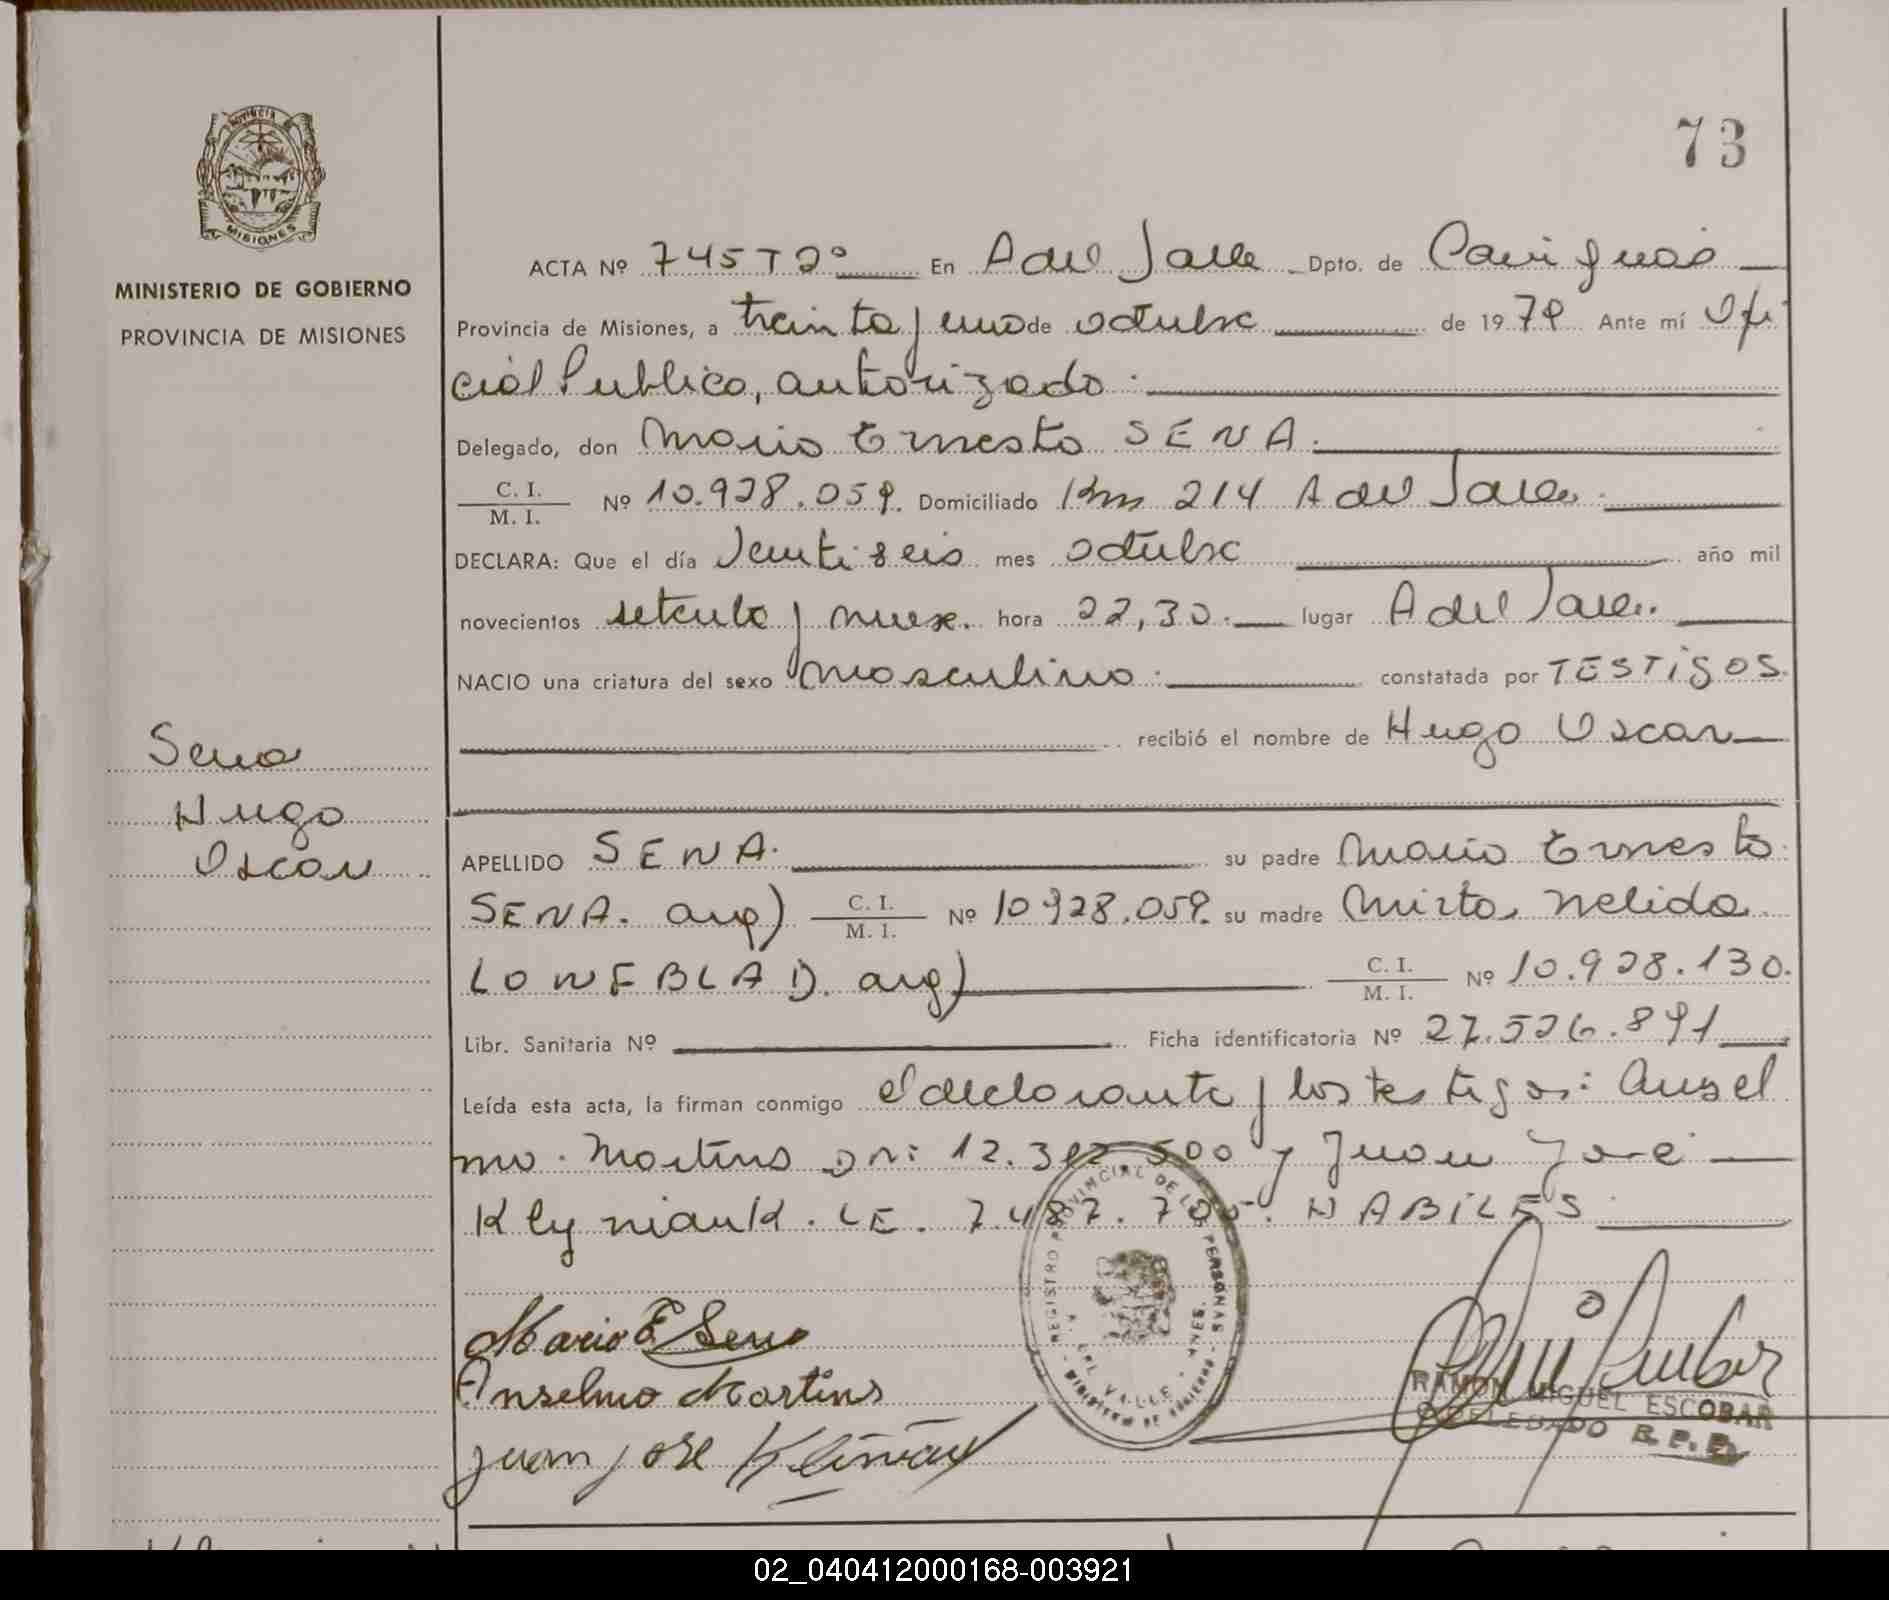 73
PROVINCIA
MISIONES
MINISTERIO DE GOBIERNO
PROVINCIA DE MISIONES
ACTA Nº 745 T 2º En A del Valle Dpto. de Cainguás
Provincia de Misiones, a treinta y uno de octubre de 1979 Ante mí Ofi
cial Publico, autorizado.
Delegado, don Mario Ernesto SENA.
C. I.
M. I. Nº 10.928.059. Domiciliado Km 214 A del Valle.
DECLARA: Que el día Veintiseis mes octubre año mil
novecientos setenta y nueve. hora 22,30. lugar A del Valle.
NACIO una criatura del sexo masculino. constatada por TESTIGOS.
recibió el nombre de Hugo Oscar
Sena
Hugo
Oscar
APELLIDO SENA. su padre Mario Ernesto
SENA. arg) C. I.
M. I. Nº 10928.059. su madre Mirta Nelida
LONEBLAD. arg) C. I.
M. I. Nº 10.928.130.
Libr. Sanitaria Nº Ficha identificatoria Nº 27.526.891
Leída esta acta, la firman conmigo el declarante y los testigos: Ansel
mo. Martins DNI: 12. 500 y Juan José
Klyniauk. LE. 7.487. HABILES
REGISTRO PROVINCIAL DE LAS PERSONAS
A. DEL VALLE - MNES.
MINISTERIO DE GOBIERNO
Mario E. Sena
Anselmo Martins
Juan José
RAMON MIGUEL ESCOBAR
DELEGADO R.P.P.
02_040412000168-003921